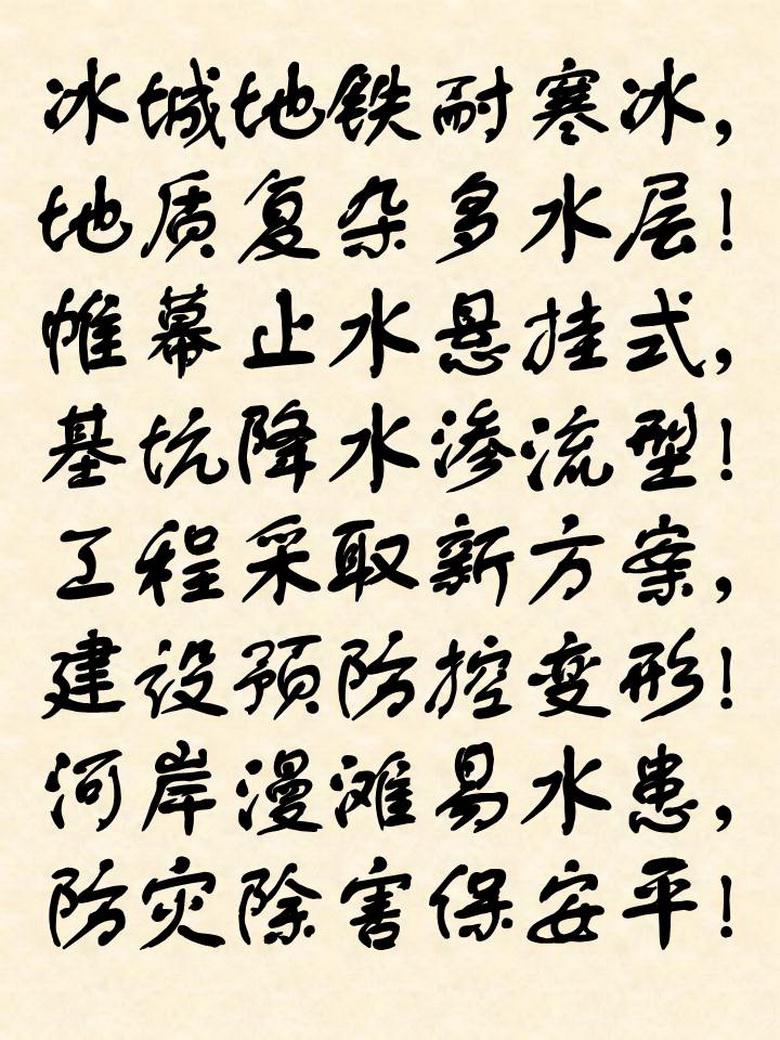 冰城地铁耐寒冰，
地质复杂多水层！
帷幕止水悬挂式，
基坑降水渗流型！
工程采取新方案，
建设预防控变形！
河岸漫滩易水患，
防灾除害保安平！